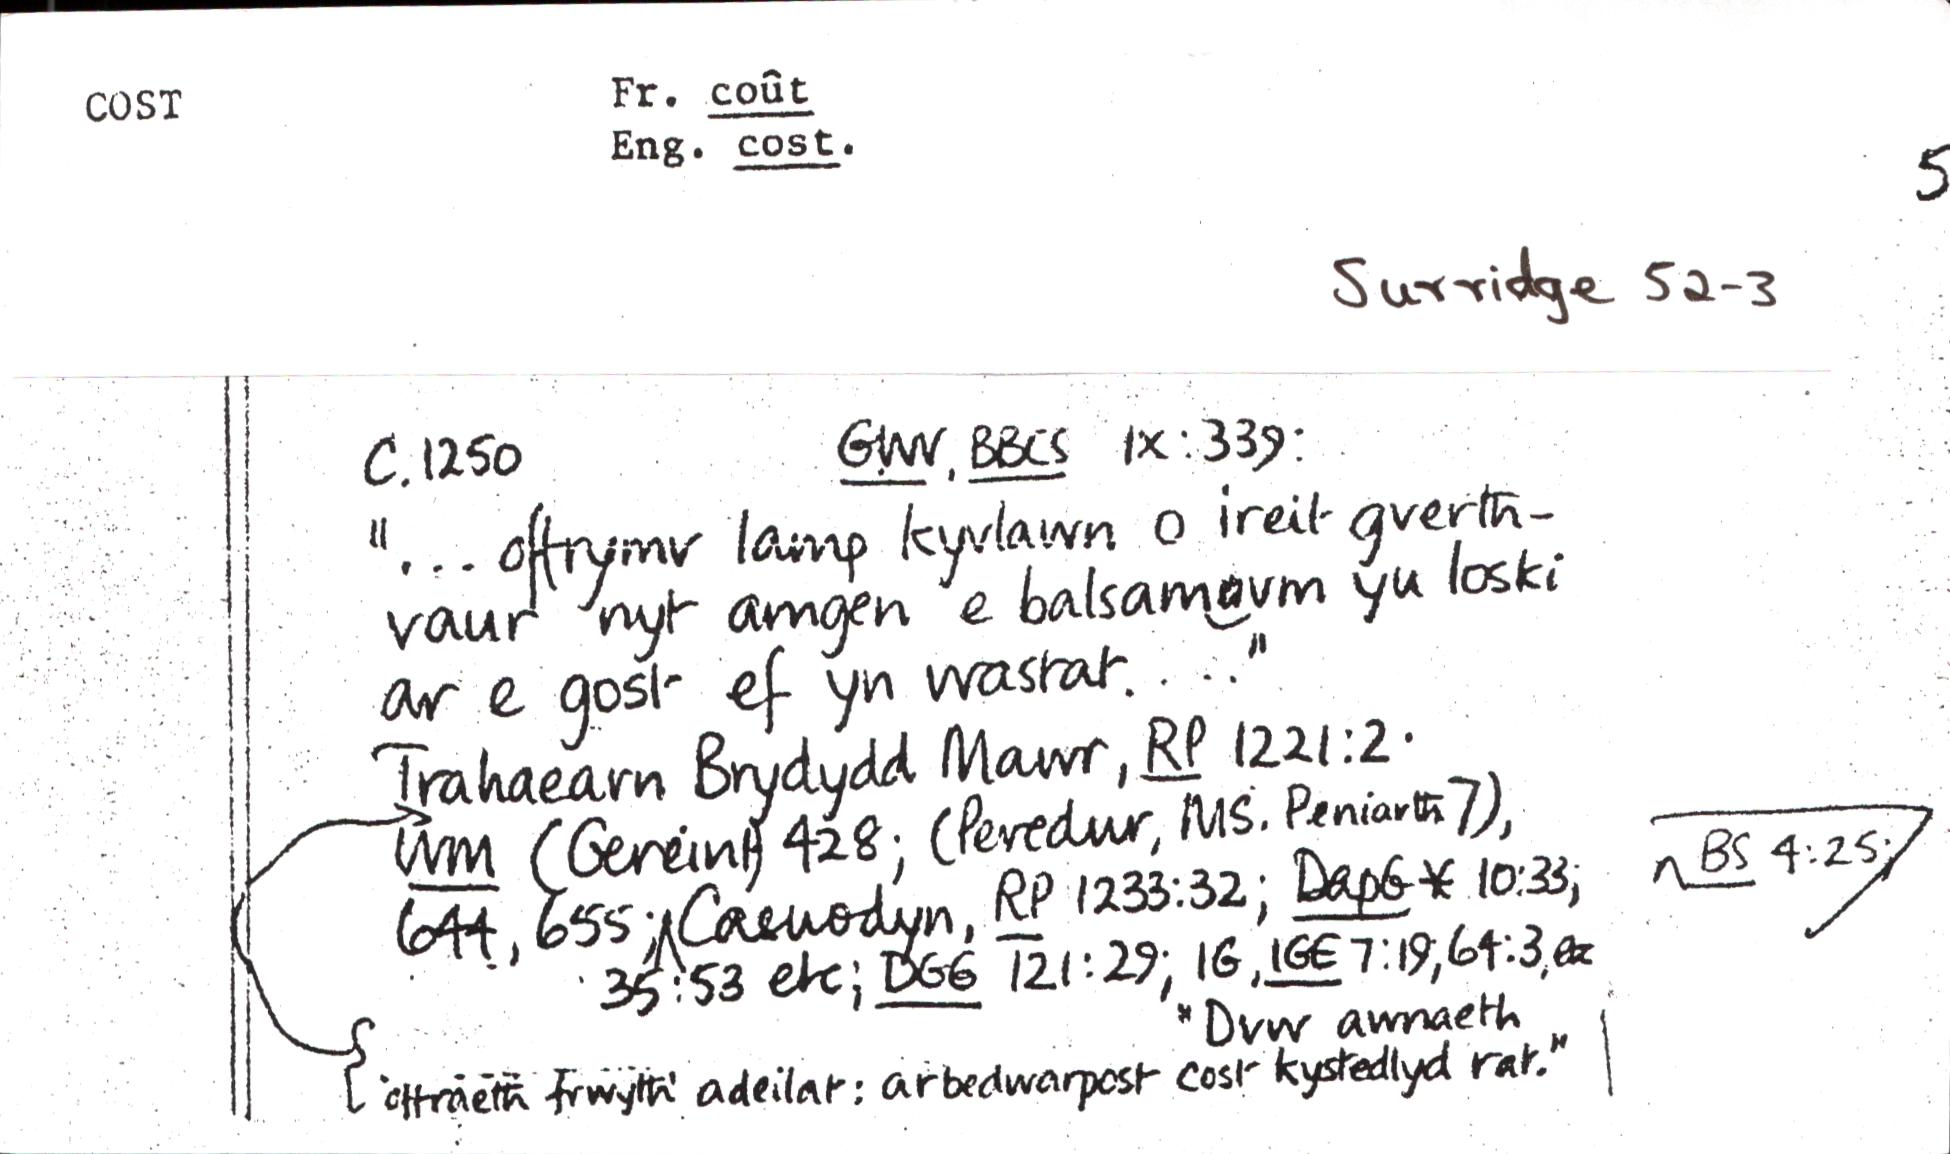 COST
Fr. coût
Eng. cost.
5
Surridge 52-3
C.1250 GWV, BBCS IX:339:
"... offrymv lamp kyvlawn o ireit gverth-
vaur nyt amgen e balsamavm yu loski
ar e gost ef yn wastat. . . ."
Trahaearn Brydydd Mawr, RP 1221:2.
WM (Gereint) 428; (Peredur, MS. Peniarth 7),
644, 655; Casnodyn, RP 1233:32; DapG * 10:33;
BS 4:25;
35:53 etc; DGG 121:29; IG, IGE 7:19, 64:3, etc
*Dvw awnaeth
offraeth frwyth adeilat: arbedwarpost cost kystedlyd rat."